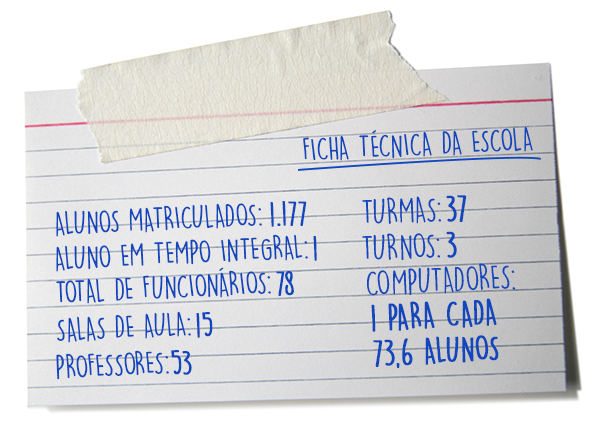 FICHA TÉCNICA DA ESCOLA
ALUNOS MATRICULADOS: 1.177
ALUNO EM TEMPO INTEGRAL: 1
TOTAL DE FUNCIONÁRIOS: 78
SALAS DE AULA: 15
PROFESSORES: 53
TURMAS: 37
TURNOS: 3
COMPUTADORES:
1 PARA CADA
73,6 ALUNOS